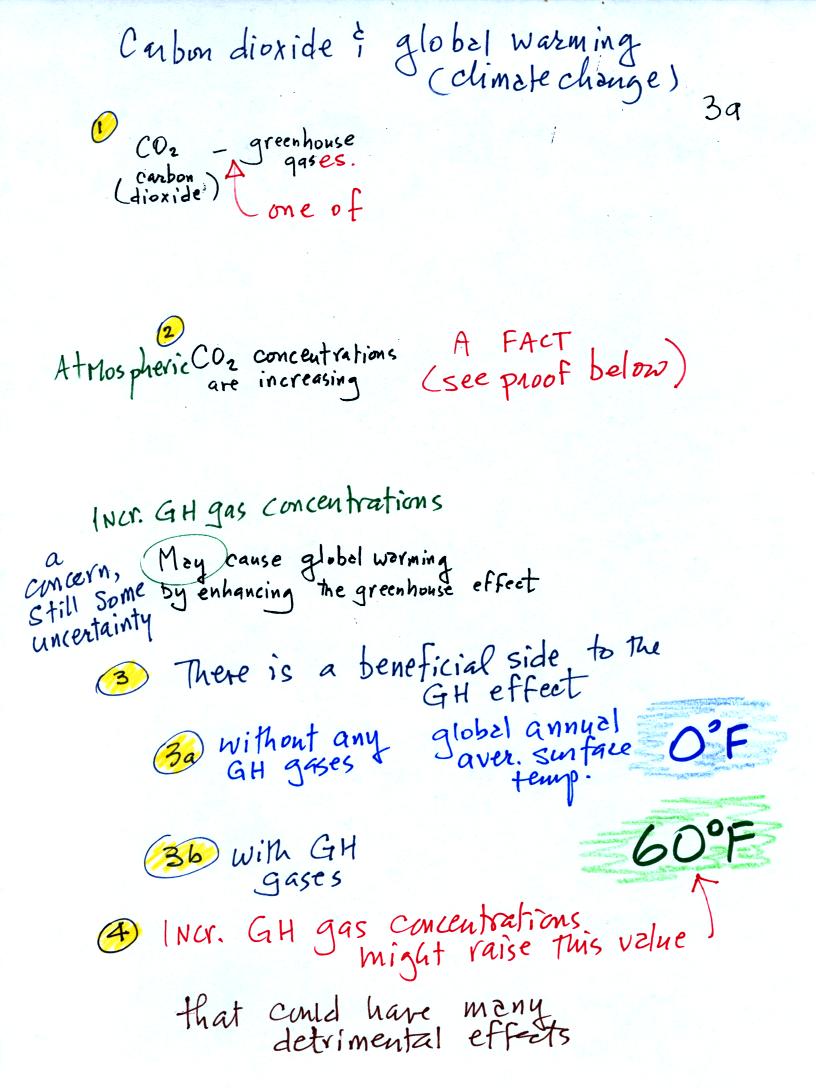 Carbon dioxide & global warming
(climate change)
3a
1
CO₂ – greenhouse
gases.
(carbon
dioxide)
one of
2
Atmospheric CO₂ concentrations
are increasing
A FACT
(see proof below)
Incr. GH gas concentrations
May cause global warming
by enhancing the greenhouse effect
a
concern,
still some
uncertainty
3 There is a beneficial side to the
GH effect
3a without any
GH gases
global annual
aver. surface
temp.
0°F
3b with GH
gases
60°F
4 Incr. GH gas concentrations
might raise this value
that could have many
detrimental effects